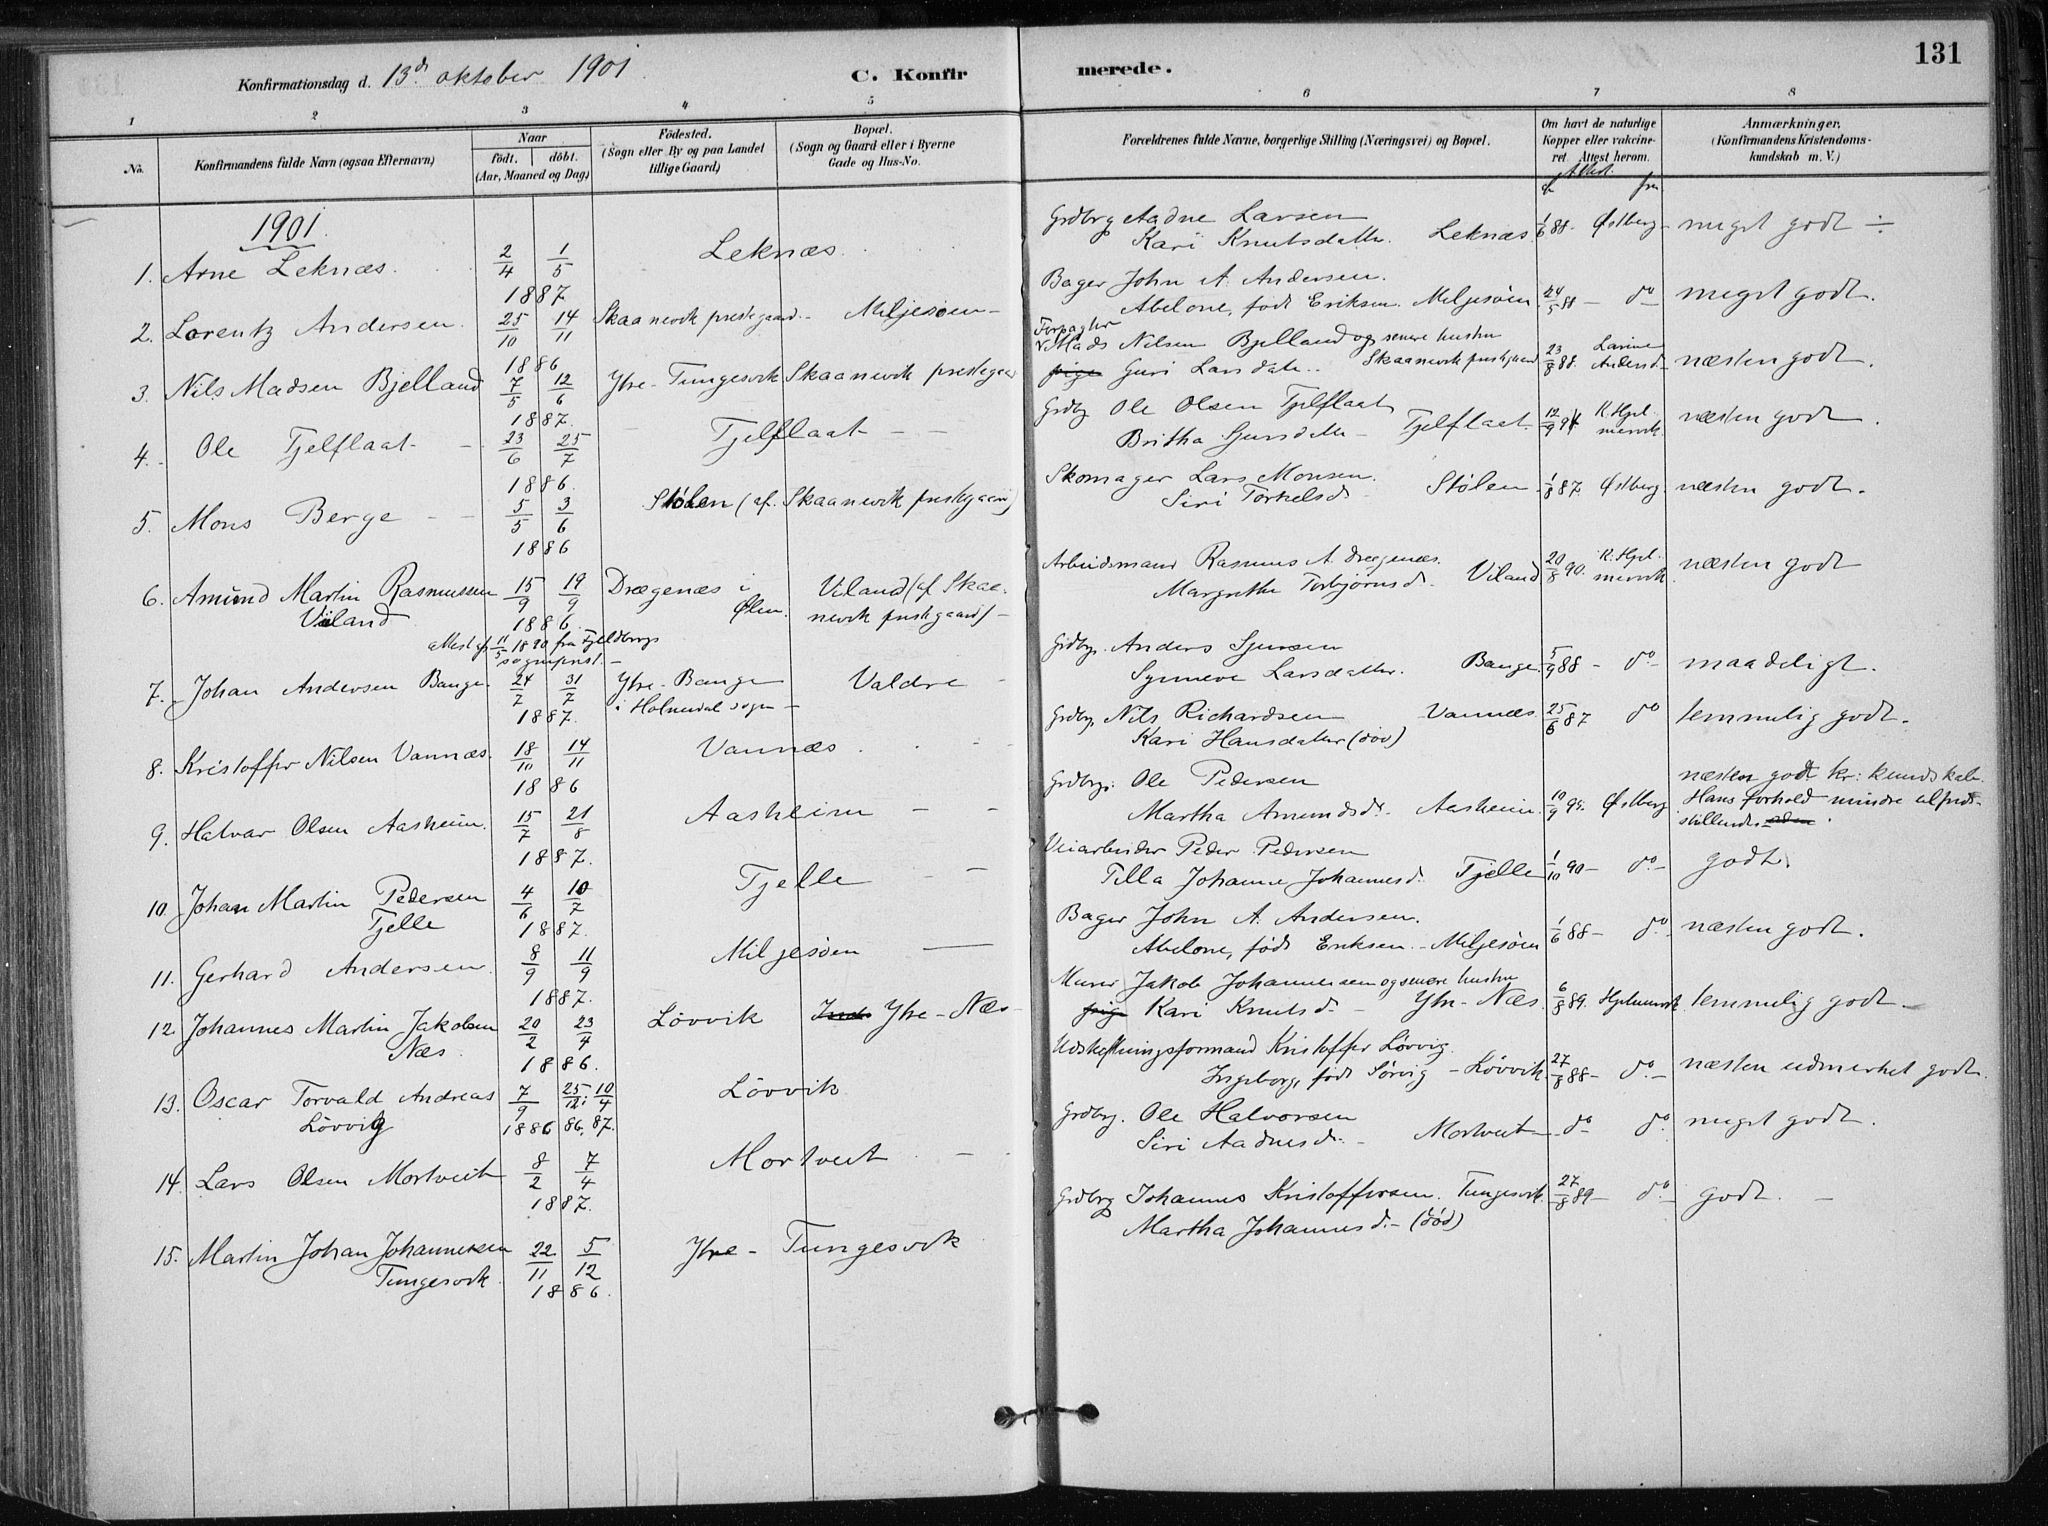 131
Konfirmationsdag d. 13de oktober 1901.
C. Konfir
merede.
1 2 3 4 5 6 7 8
No.
Konfirmandens fulde Navn (ogsaa Efternavn)
Naar
födt. döbt.
(Aar, Maaned og Dag)
Födested.
(Sogn eller By og paa Landet
tillige Gaard)
Bopæl.
(Sogn og Gaard eller i Byerne
Gade og Hus-No.
Forældrenes fulde Navne, borgerlige Stilling (Næringsvei) og Bopæl.
Om havt de naturlige
Kopper eller vakcine-
ret. Attest herom.
Anmærkninger,
(Konfirmandens Kristendoms-
kundskab m. V.)
Attest.
af fra
1901.
1. Arne Leknæs. 2/4 1/5 1887 Leknæs.
Grdbrg Aadne Larsen
Kari Knutsdatter. Leknæs. 1/6 88 - Østberg - meget godt ÷
2. Lorentz Andersen. 25/10 14/11 1886 Skaanevik prestegaard. - Miljesöen -
Bager John A. Andersen.
Abelone, född Eriksen. Miljesöen 24/5 88 - do - meget godt.
3. Nils Madsen Bjelland 7/5 12/6 1887. Ytre - Tungesvik Skaanevik prestegaar
Forpagter
Mads Nilsen Bjelland og senere hustru
pige Guri Larsdatr. Skaanevik prestegaard 23/8 88. Larine Andersd - næsten godt.
4. Ole Tjelflaat - 23/6 25/7 1886. Tjelflaat - -
Grdbg Ole Olsen Tjelflaat
Britha Sjursdatter - Tjelflaat. 12/9 94 K. Hjelmervik næsten godt.
5. Mons Berge - - 5/5 3/6 1886 Stölen (af Skaanevik prestegaard)
Skomager Lars Monsen.
Siri Torkelsd. Stölen. 1/8 87. Østberg næsten godt.
6. Amund Martin Rasmussen
Viland 15/9 19/9 1886. Drægenæs i
Ølen. Viland (af Skaa-
nevik prestegaard) -
Arbeidsmand Rasmus A. Drægenæs.
Margrethe Torbjørnsd. Viland 20/8 90. K. Hjelmervik næsten godt
attest af 11/5 1890 fra Fjeldbergs
sogneprest. -
7. Johan Andersen Bange. 24/7 31/7 1887. Ytre - Bange
i Holmedal sogn - Valdre -
Grdbrg. Anders Sjursen
Synneve Larsdatter. Bange. 5/9 88 - do - maadeligt.
8. Kristoffer Nilsen Vannæs. 18/10 14/11 1886 Vannæs
Grdbrg. Nils Richardsen Vannæs. 25/6 87 do temmelig godt.
Kari Hansdatter (död)
9. Halvar Olsen Aasheim. 15/7 21/8 1887. Aasheim - -
Grdbrg. Ole Pedersen
Martha Amundsdr. Aasheim. 10/9 95. Østberg. næsten godt kr: kundskab.
Hans forhold mindre tilfreds-
stillende.
10. Johan Martin Pedersen
Tjelle 4/6 10/7 1887. Tjelle - -
Veiarbeider Peder Pedersen
Tilla Johanne Johannesd. Tjelle 1/10 90 - do - godt.
11. Gerhard Andersen. 8/9 11/9 1887. Miljesöen
Bager John A. Andersen.
Abelone, född Eriksen. - Miljesöen 1/6 88 - do - næsten godt.
12. Johannes Martin Jakobsen
Næs. 20/2 23/4 1886. Lövvik Ytre - Næs -
Murer Jakob Johannessen og senere hustru
pige Kari Knutsd. - Ytre - Næs. 6/8 89. Hjelmervik temmelig godt -
13. Oscar Torvald Andreas
Lövvig 7/9 1886 25/12 86. 10/4 87. Lövvik
Udskiftningsformand Kristoffer Lövvig.
Ingeborg, född Sörvig - Lövvik. 27/8 88 - do - næsten udmerket godt.
14. Lars Olsen Mortveit 8/2 7/4 1887. Mortveit - -
Grdbrg. Ole Halvorsen
Siri Aadnesdr. - Mortveit - do - do. meget godt.
15. Martin Johan Johannessen
Tungesvik. 22/11 5/12 1886. Ytre - Tungesvik
Grdbrg Johannes Kristoffersen. Tungesvik. 27/8 89 - do - godt. -
Martha Johannesd. - (död)